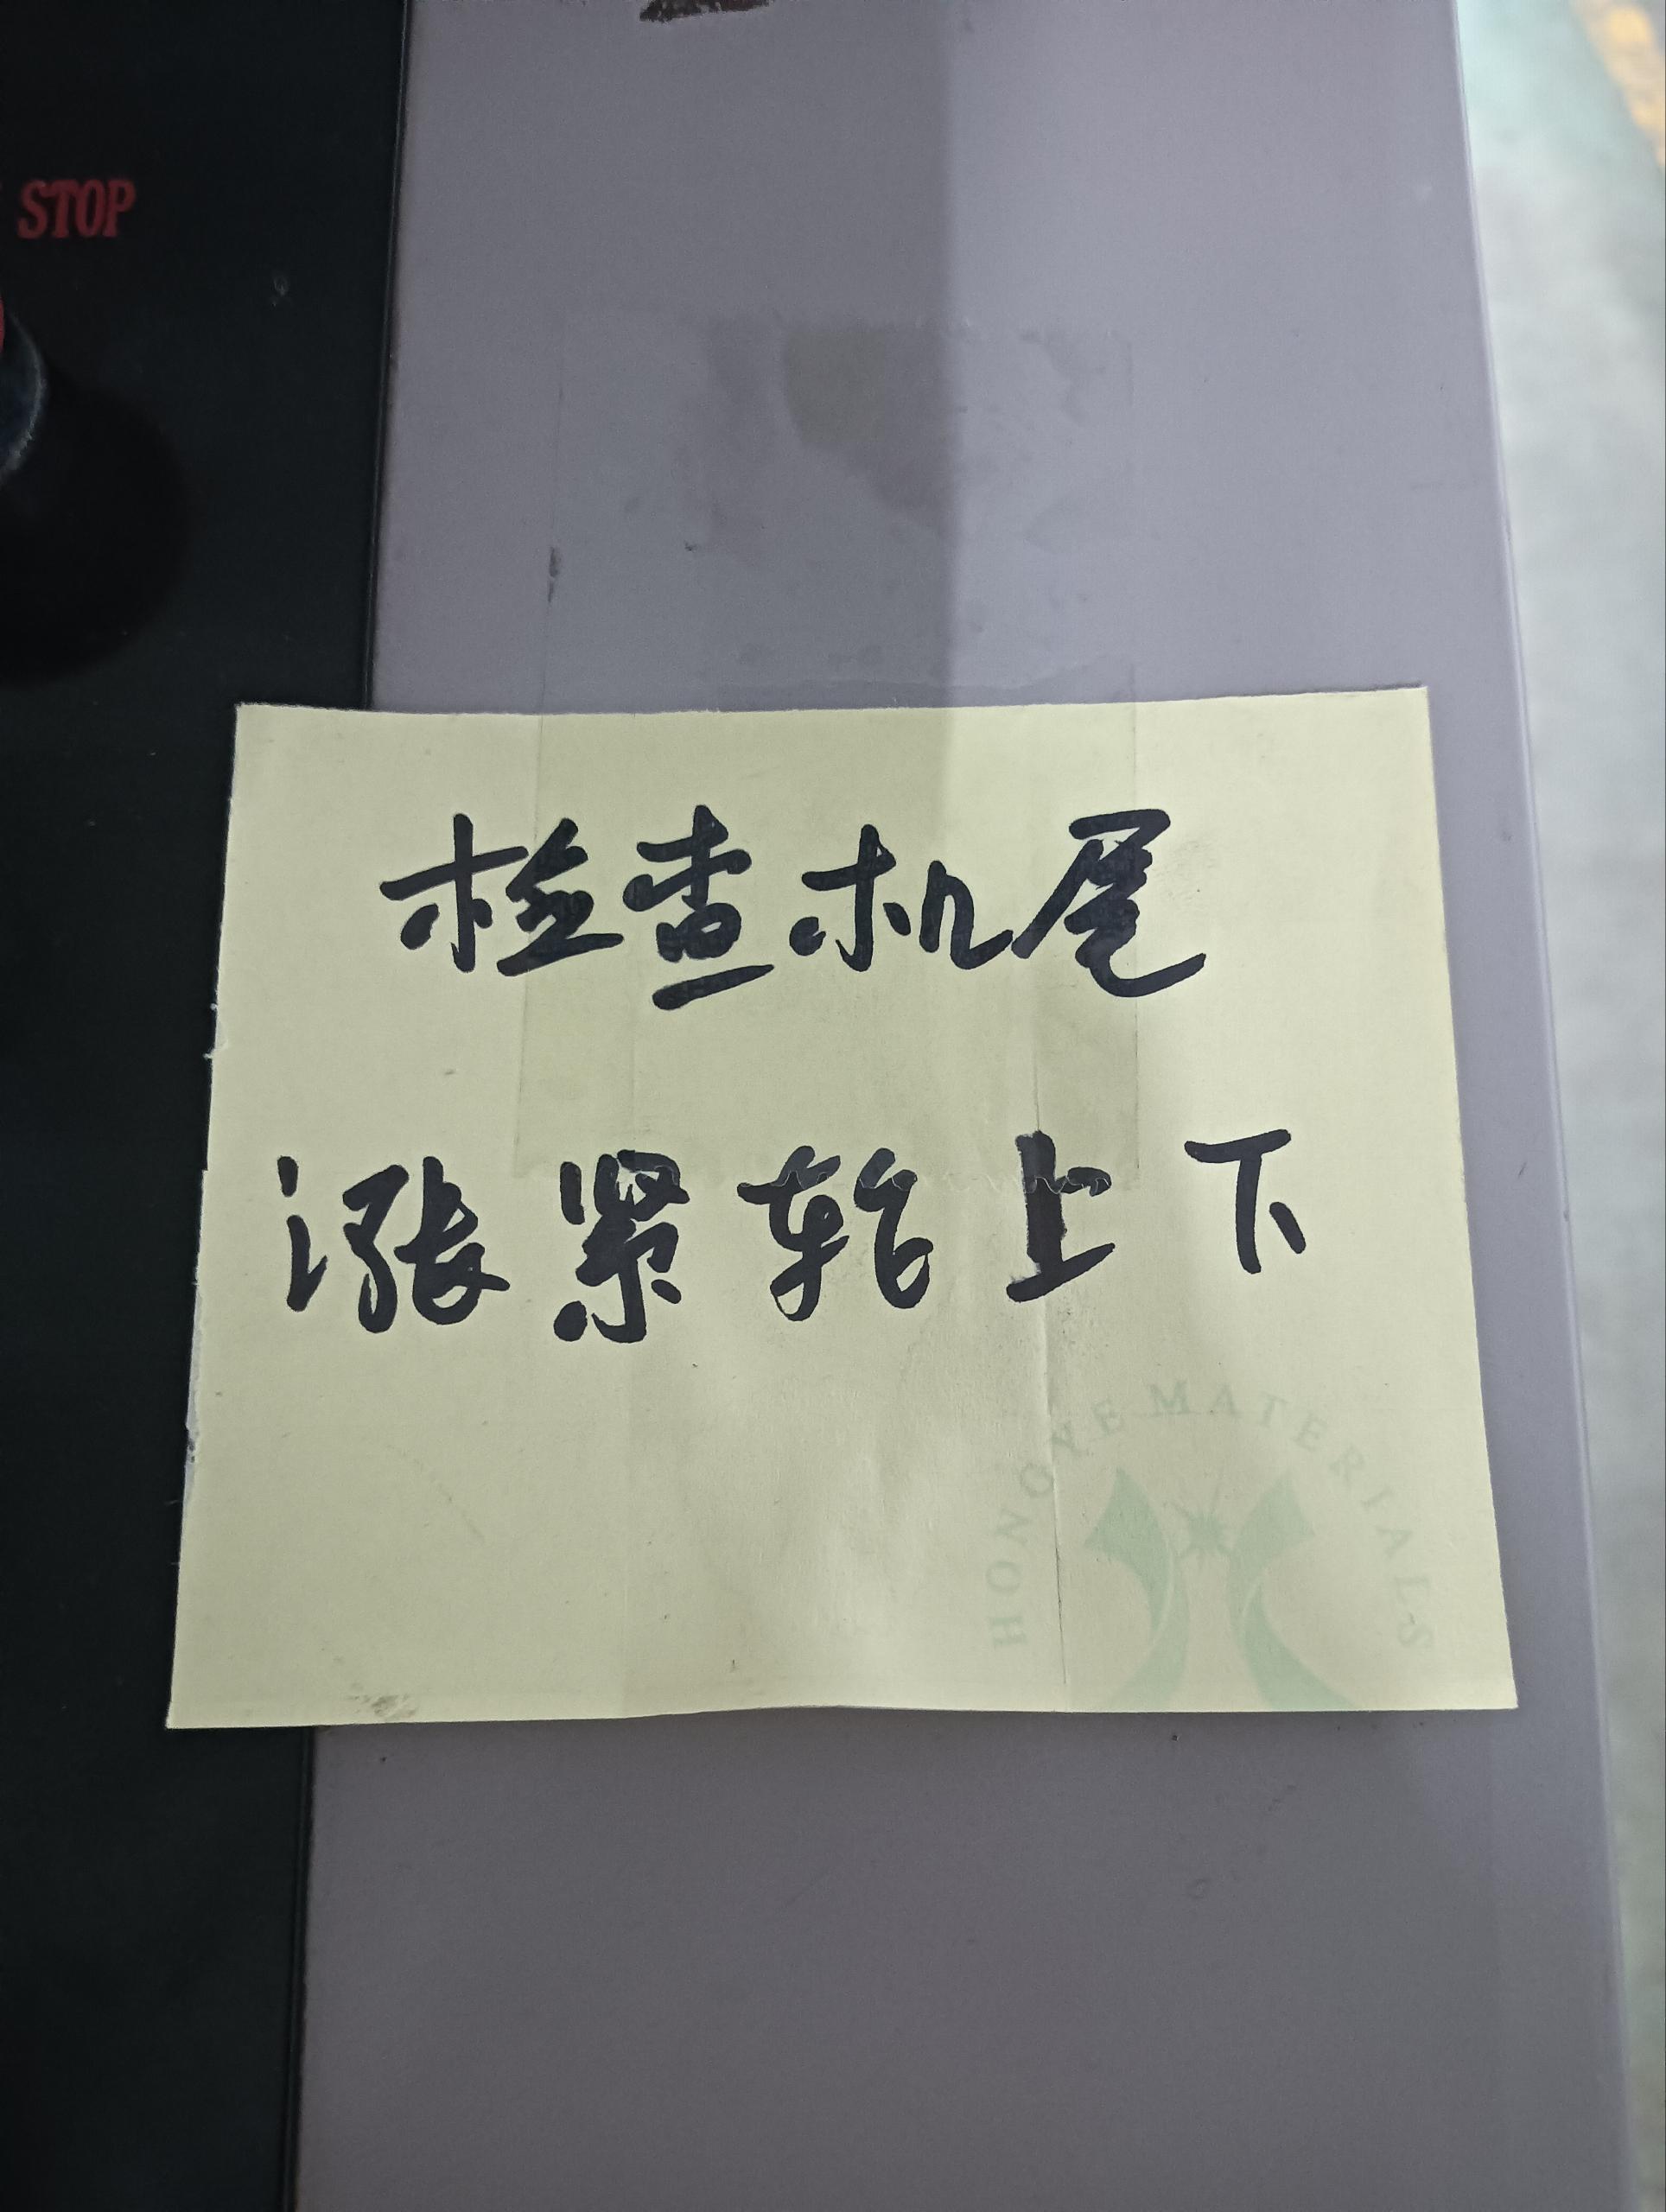 STOP
检查机尾
漲紧轮上下
HONGYE MATERIALS